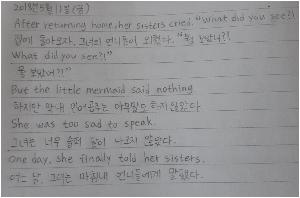 2019년 5월 17일 (금)
After returning home, her sisters cried, "What did you see?!
집에 돌아오자, 그녀의 언니들이 외쳤다. "뭘 보았니?!
What did you see?!"
뭘 봤어?!"
But the little mermaid said nothing
하지만 막내 인어공주는 아무말도 하지 않았다
She was too sad to speak.
그녀는 너무 슬퍼 말이 나오지 않았다.
One day, she finally told her sisters.
어느 날, 그녀는 마침내 언니들에게 말했다.